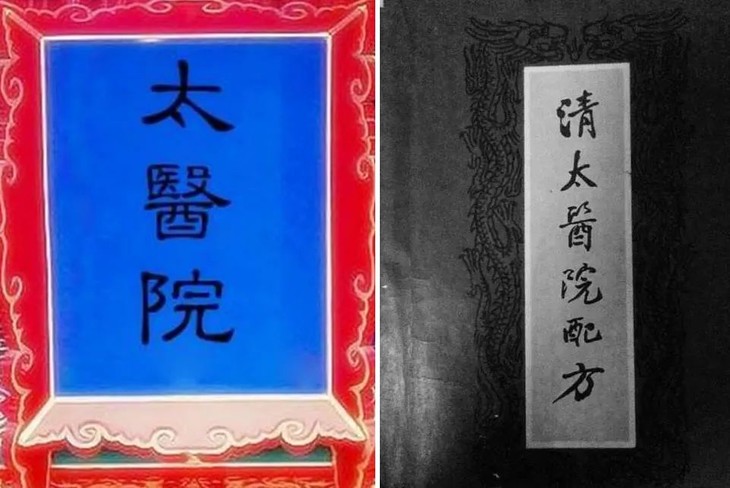 太醫院
清太醫院配方